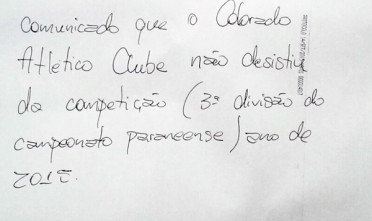 comunicado que o Colorado
Atlético Clube não desistiu
da competição (3ª divisão do
campeonato paraneense) ano de
2015.